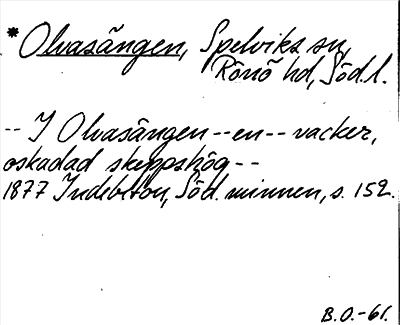 *Olvasängen, Spelviks sn,
Rönö hd, Söd.l.
-- I Olvasängen--en--vacker,
oskadad skeppshög--
1877 Indebetou, Söd. minnen, s. 152.
B.O.-61.